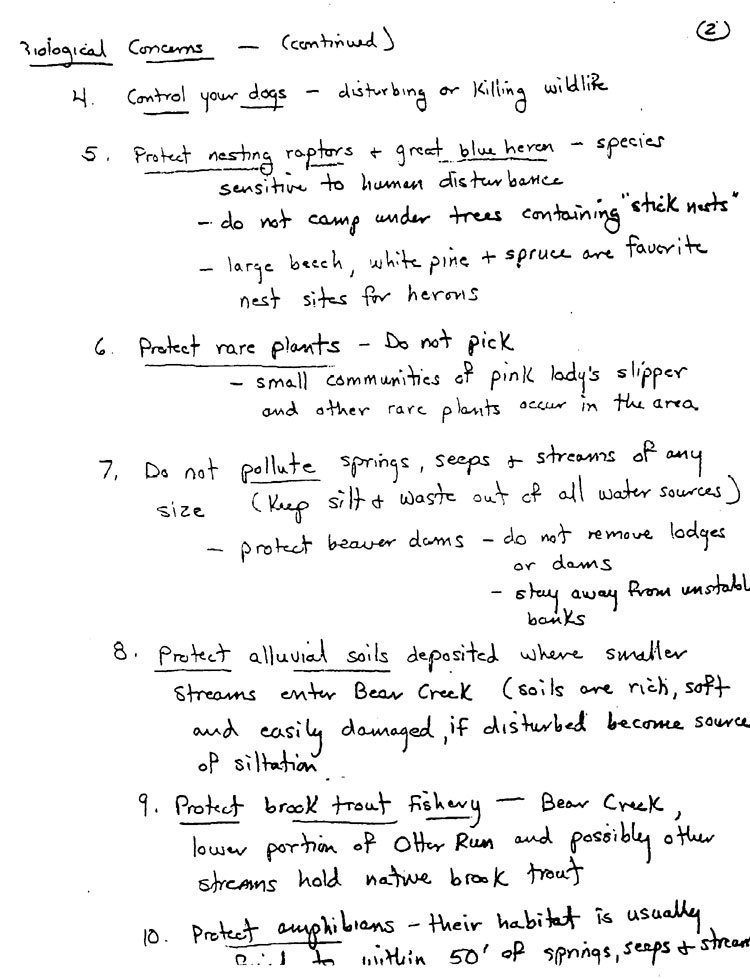 2
Biological Concerns — (continued)
4. Control your dogs - disturbing or killing wildlife
5. Protect nesting raptors + great blue heron - species
sensitive to human disturbance
- do not camp under trees containing "stick nests"
- large beech, white pine + spruce are favorite
nest sites for herons
6. Protect rare plants - Do not pick
- small communities of pink lady's slipper
and other rare plants occur in the area
7, Do not pollute springs, seeps + streams of any
size (Keep silt + waste out of all water sources)
- protect beaver dams - do not remove lodges
or dams
- stay away from unstabl
banks
8. Protect alluvial soils deposited where smaller
streams enter Bear Creek (soils are rich, soft
and easily damaged, if disturbed become source
of siltation
9. Protect brook trout Fishery — Bear Creek,
lower portion of Otter Run and possibly other
streams hold native brook trout
10. Protect amphibians - their habitat is usually
to within 50' of springs, seeps + stream